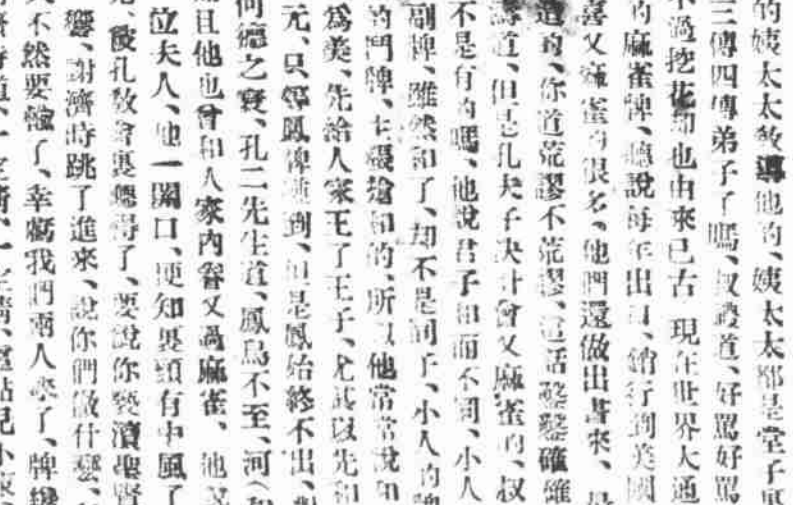 的姨太太敎導他的、姨太太都是堂子裏
三傳四傳弟子了嗎、叔證道、好罵好罵
不過挖花却也由來已古 現在世界大通
的麻雀牌、聽說每年出口、銷行到美國
喜叉麻雀的很多、他們還做出書來、
道的、你道荒謬不荒謬、這話鑿鑿確
道、但是孔夫子决計會叉麻雀的、叔
不是有的嗎、他說君子和而不同、小人
副牌、雖然和了、却不是同子、小人的牌
的門牌、七張搶和的、所以他常常說和
爲美、先給人家王了王子、尤其以先和
元、只等鳳牌 到、但是鳳始終不出、
何德之衰、孔二先生道、鳳鳥不至、河
且他也曾和人家內眷叉過麻雀、他
位夫人、他一開口、便知裏頭有中風了
、謝濟時跳了進來、說你們做什麼、
、設孔敎會裏曉得了、要說你褻瀆聖賢
不然要輸了、幸虧我們兩人來了、牌
道、一定